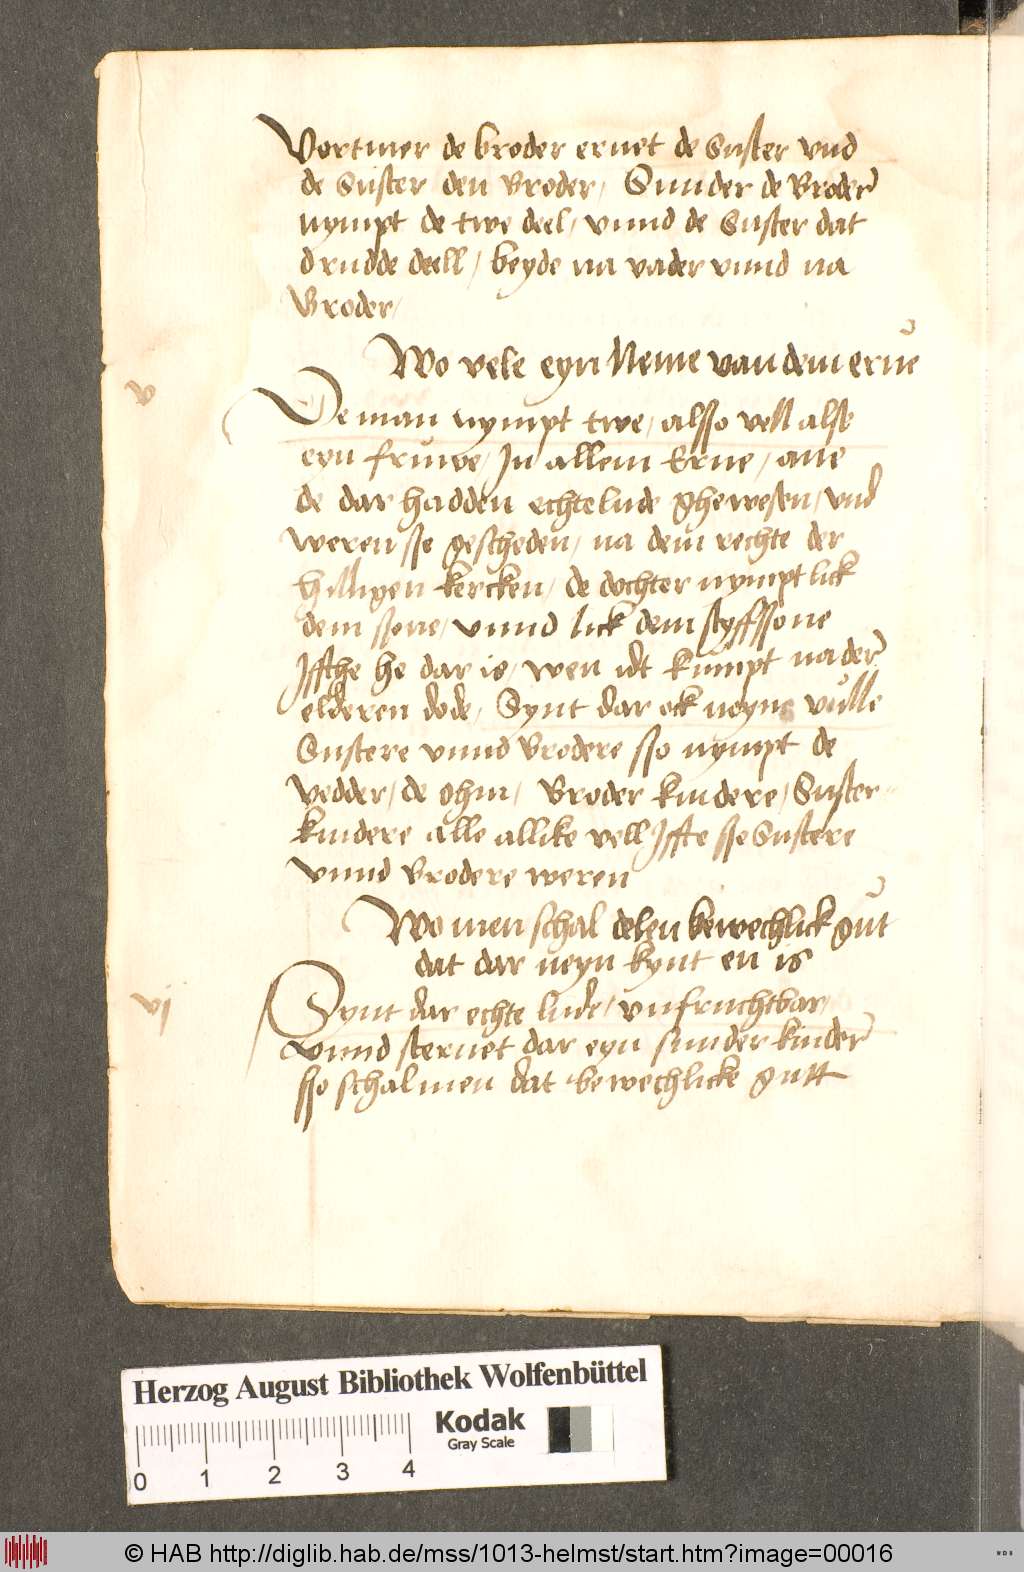 Vortmer de broder eruet de suster vnd
de suster den Broder, Sunder de Broder
nympt de twe deel, vnnd de suster dat
drudde deell, beyde na vader vnnd na
Broder,
Wo vele eyn Neme van dem erue
v
De man nympt twe, alsso vell alse
eyn fruwe, Jn allem Erue, aue
de dar hadden echtelude ghewesen, vnd
weren sse gescheden, na dem rechte der
hilligen kercken, de dochter nympt lick
dem ssone, vnnd lick dem styffssone
Jffthe he dar is, wen idt kumpt na der
elderen dode, Synt dar ock neyne vulle
Sustere vnnd Brodere sso nympt de
vedder, de ohm, Broder kindere, Suster
kindere alle allike vell Jffte sse Sustere
vnnd Brodere weren
Wo men schal delen bewechlick gut
dat dar neyn kynt en is
vj
Synt dar echte lude, vnfruchtbar,
vnnd steruet dar eyn sunder kinder
sso schal men dat bewechlicke gutt
Herzog August Bibliothek Wolfenbüttel
Kodak
Gray Scale
0 1 2 3 4
© HAB http://diglib.hab.de/mss/1013-helmst/start.htm?image=00016